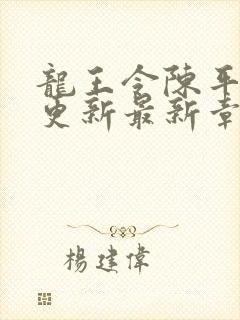 龍王令陳平
更新最新章
楊建偉